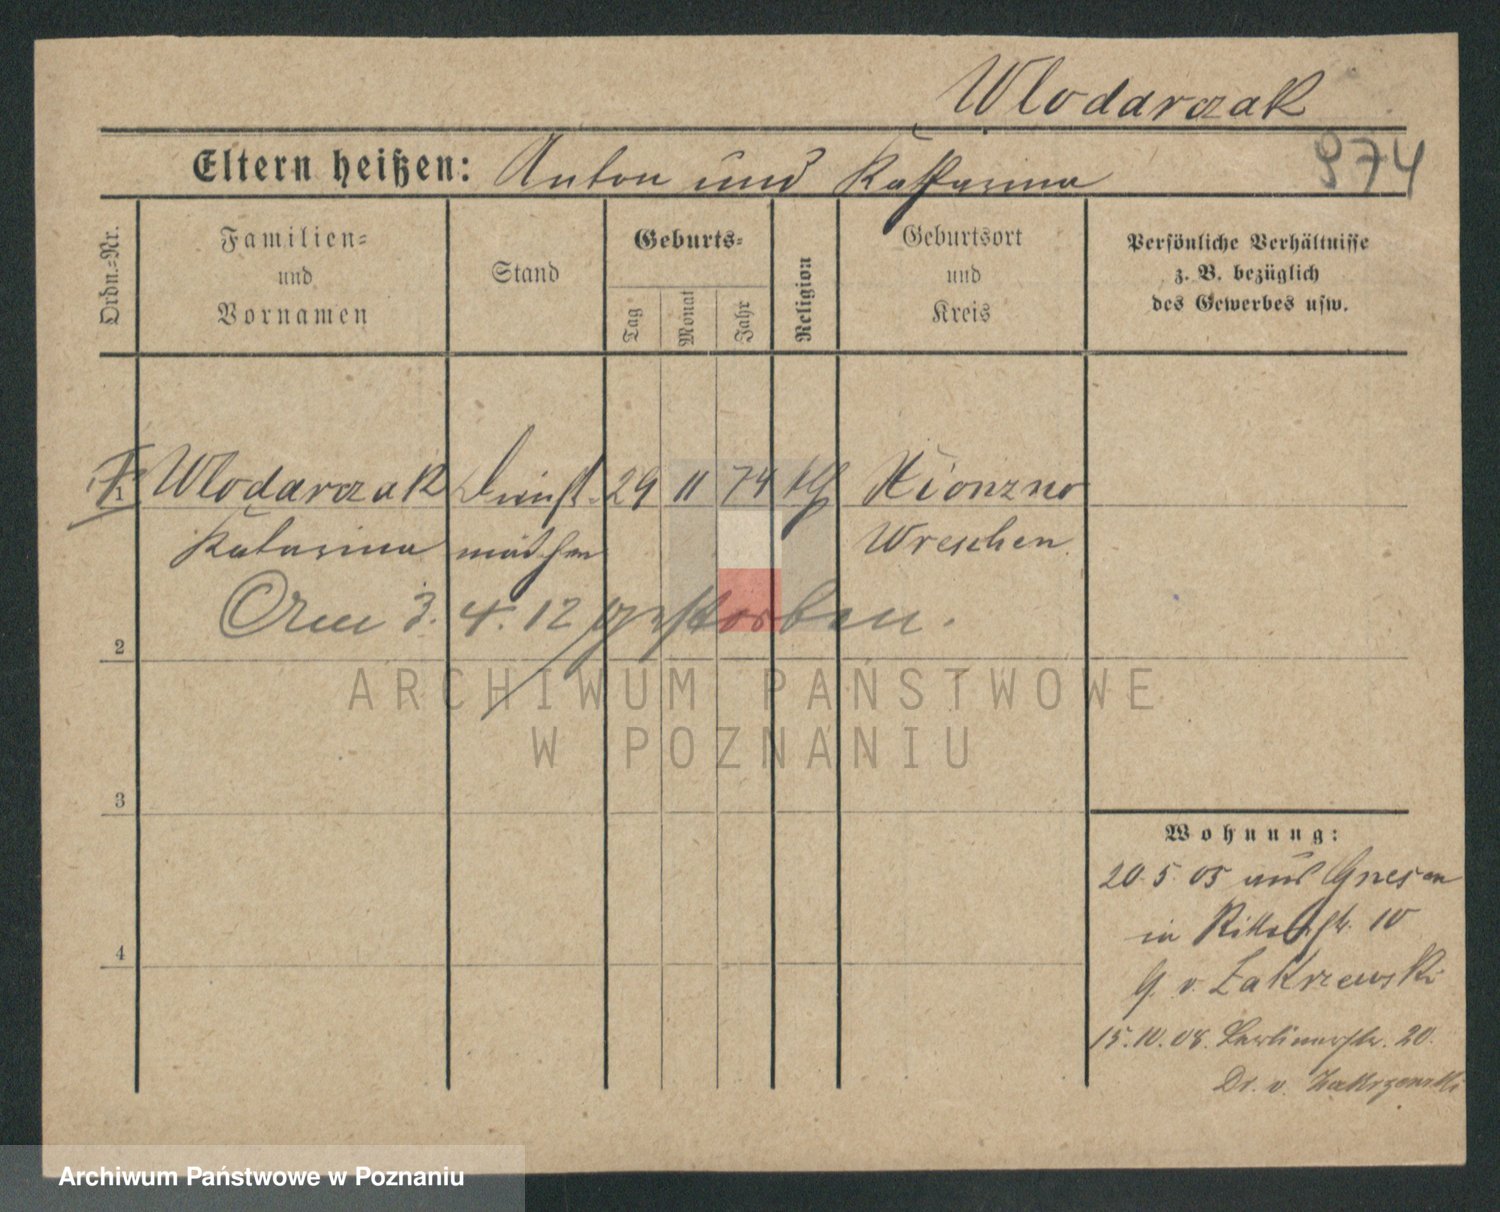 Wlodarczak
Eltern heißen: Anton und Katharina
974
Ordn.-Nr.
Familien-
und
Vornamen
Stand
Geburts-
Tag
Monat
Jahr
Religion
Geburtsort
und
Kreis
Persönliche Verhältnisse
z. B. bezüglich
des Gewerbes usw.
1 Wlodarczak Dienst- 29 11 74 kth
Katarina mädchen Wreschen
Am 3. 4. 12 gestorben.
2
ARCHIWUM PAŃSTWOWE
W POZNANIU
3
4
Wohnung:
20.5.05 aus Gnesen
in Ritterstr. 10
G. v. Zakrzewski
15.10.08. Berlinerstr. 20.
Dr. v. Zakrzewski
Archiwum Państwowe w Poznaniu